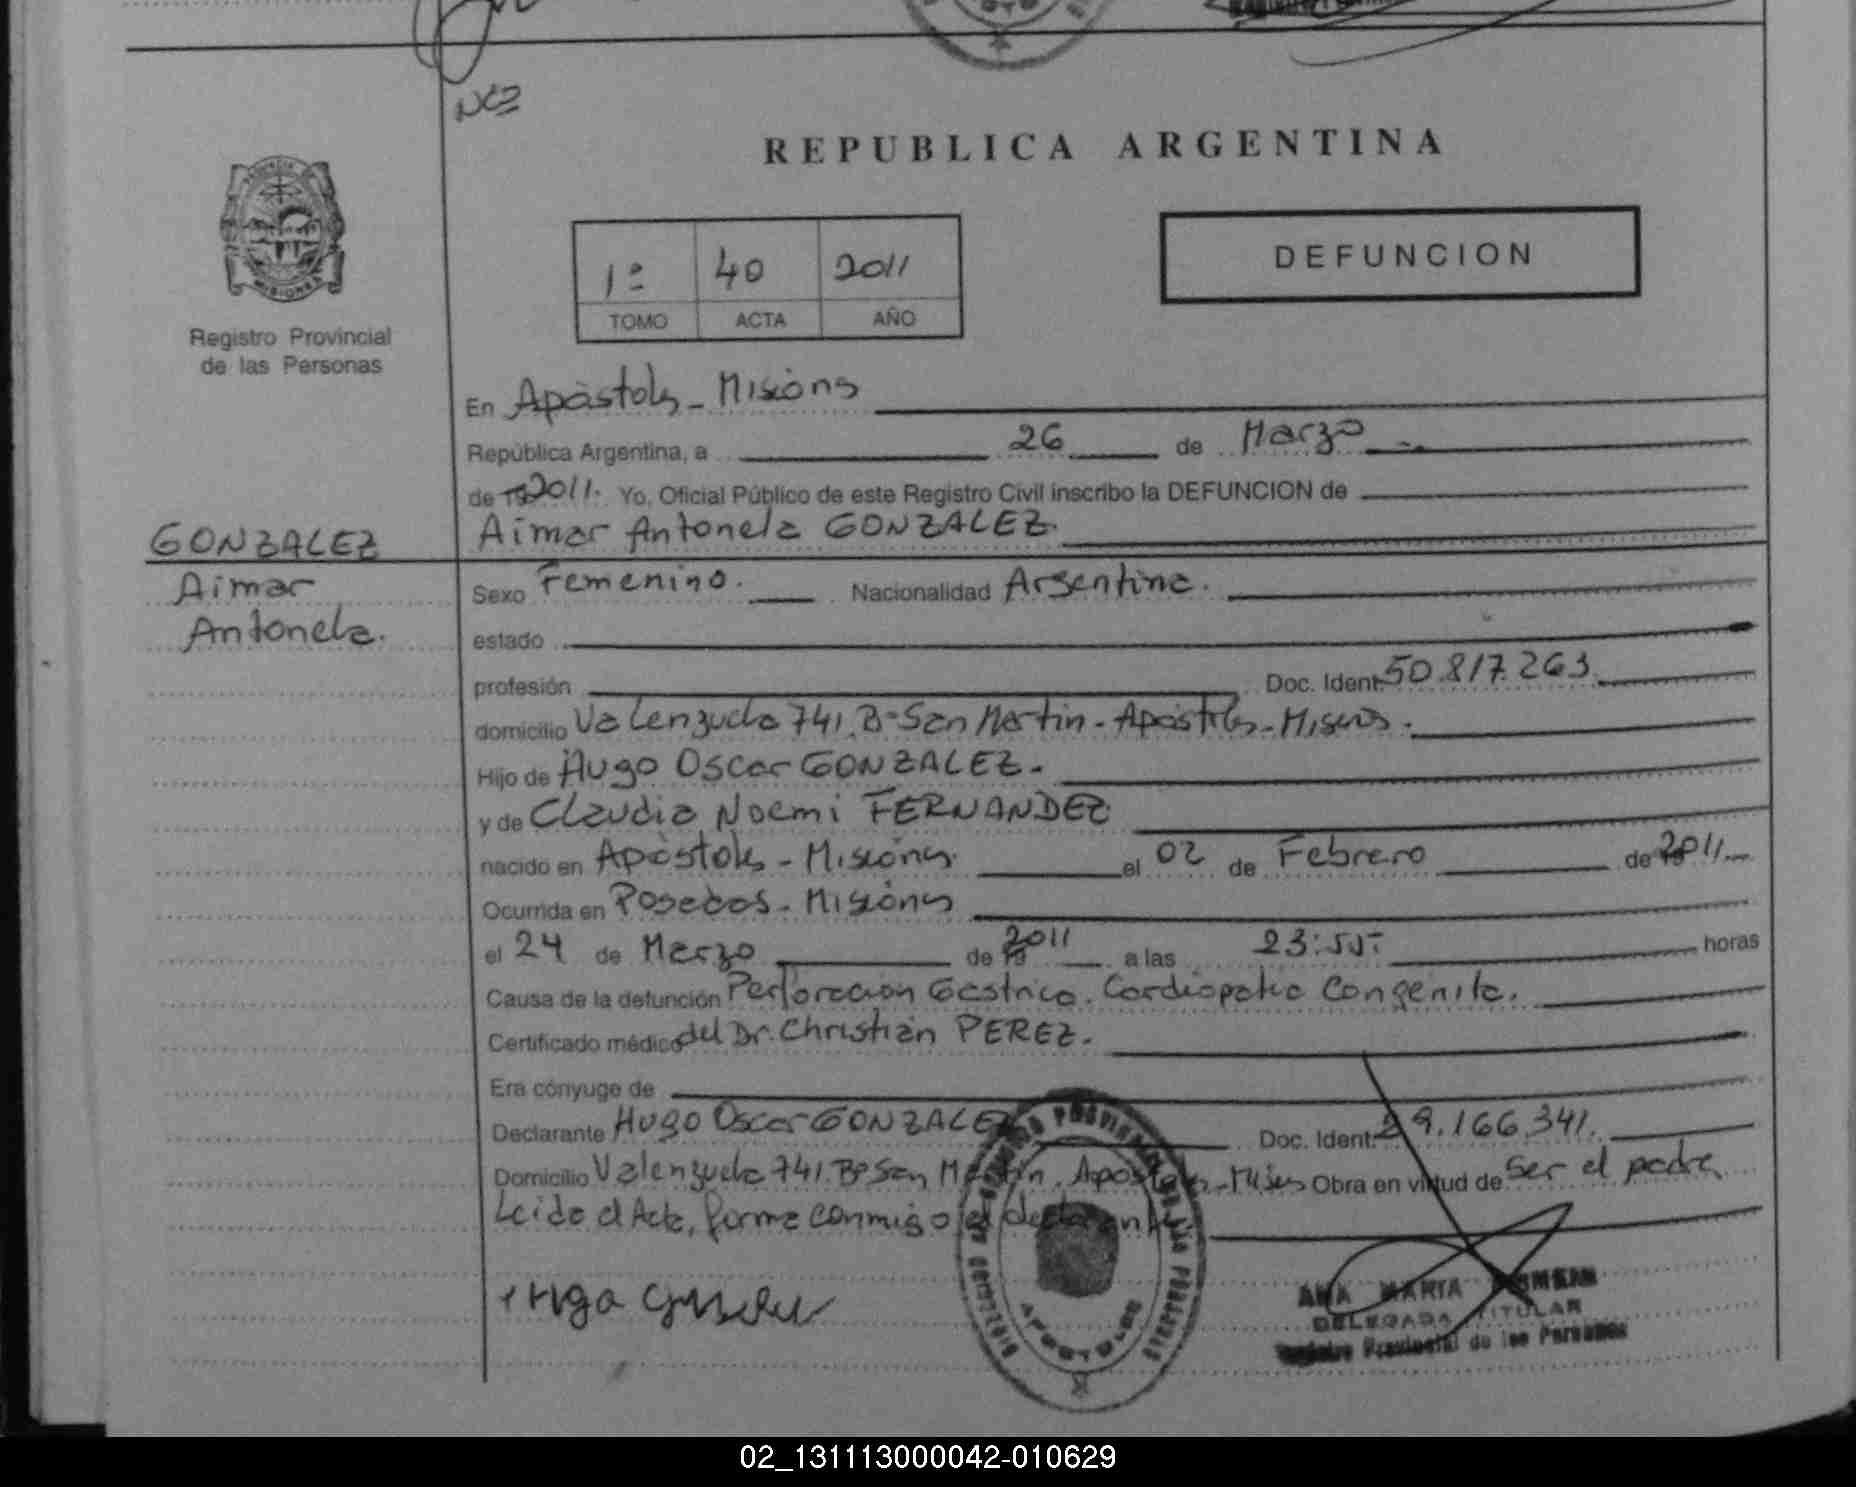 REPUBLICA ARGENTINA
Registro Provincial
de las Personas
DEFUNCION
1º 40 2011
TOMO ACTA AÑO
En Apóstoles - Misiones
República Argentina, a 26 de Marzo
de 19 2011. Yo, Oficial Público de este Registro Civil inscribo la DEFUNCION de
GONZALEZ
Aimar
Antonela.
Aimar Antonela GONZALEZ.
Sexo Femenino. Nacionalidad Argentina.
estado
profesión Doc. Ident. 50.817.263.
domicilio Valenzuela 741. Bº San Martin - Apóstoles - Misiones.
Hijo de Hugo Oscar GONZALEZ.
y de Claudia Noemi FERNANDEZ
nacido en Apóstoles - Misiones. el 02 de Febrero de 19 2011
Ocurrida en Posadas - Misiones
el 24 de Marzo de 19 2011 a las 23:55 horas
Causa de la defunción Perforacion Gastrica. Cardiopatia Congenita.
Certificado médico del Dr. Christian PEREZ.
Era cónyuge de
Declarante Hugo Oscar GONZALEZ Doc. Ident. 29.166.341.
Domicilio Valenzuela 741. Bº San Martin. Apóstoles - Misiones Obra en virtud de ser el padre
Leida el Acta, firma conmigo el declarante
ANA MARIA
DELEGADA TITULAR
Registro Provincial de las Personas
APOSTOLES
02_131113000042-010629